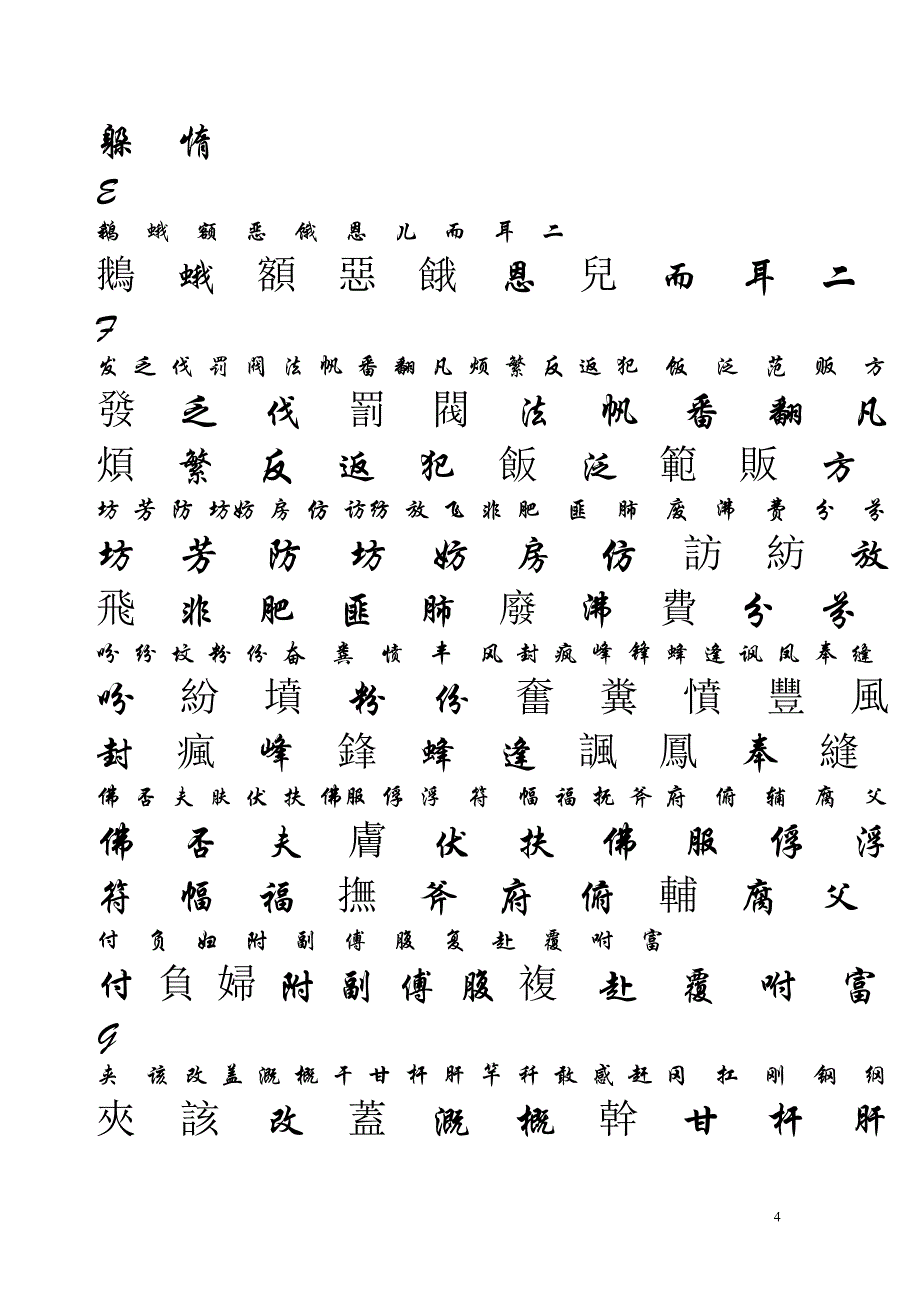 躲 惰
E
鹅 蛾 额 恶 饿 恩 儿 而 耳 二
鵝 蛾 額 惡 餓 恩 兒 而 耳 二
F
发 乏 伐 罚 阀 法 帆 番 翻 凡 烦 繁 反 返 犯 饭 泛 范 贩 方
發 乏 伐 罰 閥 法 帆 番 翻 凡
煩 繁 反 返 犯 飯 泛 範 販 方
坊 芳 防 坊 妨 房 仿 访 纺 放 飞 非 肥 匪 肺 废 沸 费 分 芬
坊 芳 防 坊 妨 房 仿 訪 紡 放
飛 非 肥 匪 肺 廢 沸 費 分 芬
吩 纷 坟 粉 份 奋 粪 愤 丰 风 封 疯 峰 锋 蜂 逢 讽 凤 奉 缝
吩 紛 墳 粉 份 奮 糞 憤 豐 風
封 瘋 峰 鋒 蜂 逢 諷 鳳 奉 縫
佛 否 夫 肤 伏 扶 佛 服 俘 浮 符 幅 福 抚 斧 府 俯 辅 腐 父
佛 否 夫 膚 伏 扶 佛 服 俘 浮
符 幅 福 撫 斧 府 俯 輔 腐 父
付 负 妇 附 副 傅 腹 复 赴 覆 咐 富
付 負 婦 附 副 傅 腹 複 赴 覆 咐 富
G
夹 该 改 盖 溉 概 干 甘 杆 肝 竿 秆 敢 感 赶 冈 扛 刚 钢 纲
夾 該 改 蓋 溉 概 幹 甘 杆 肝
4